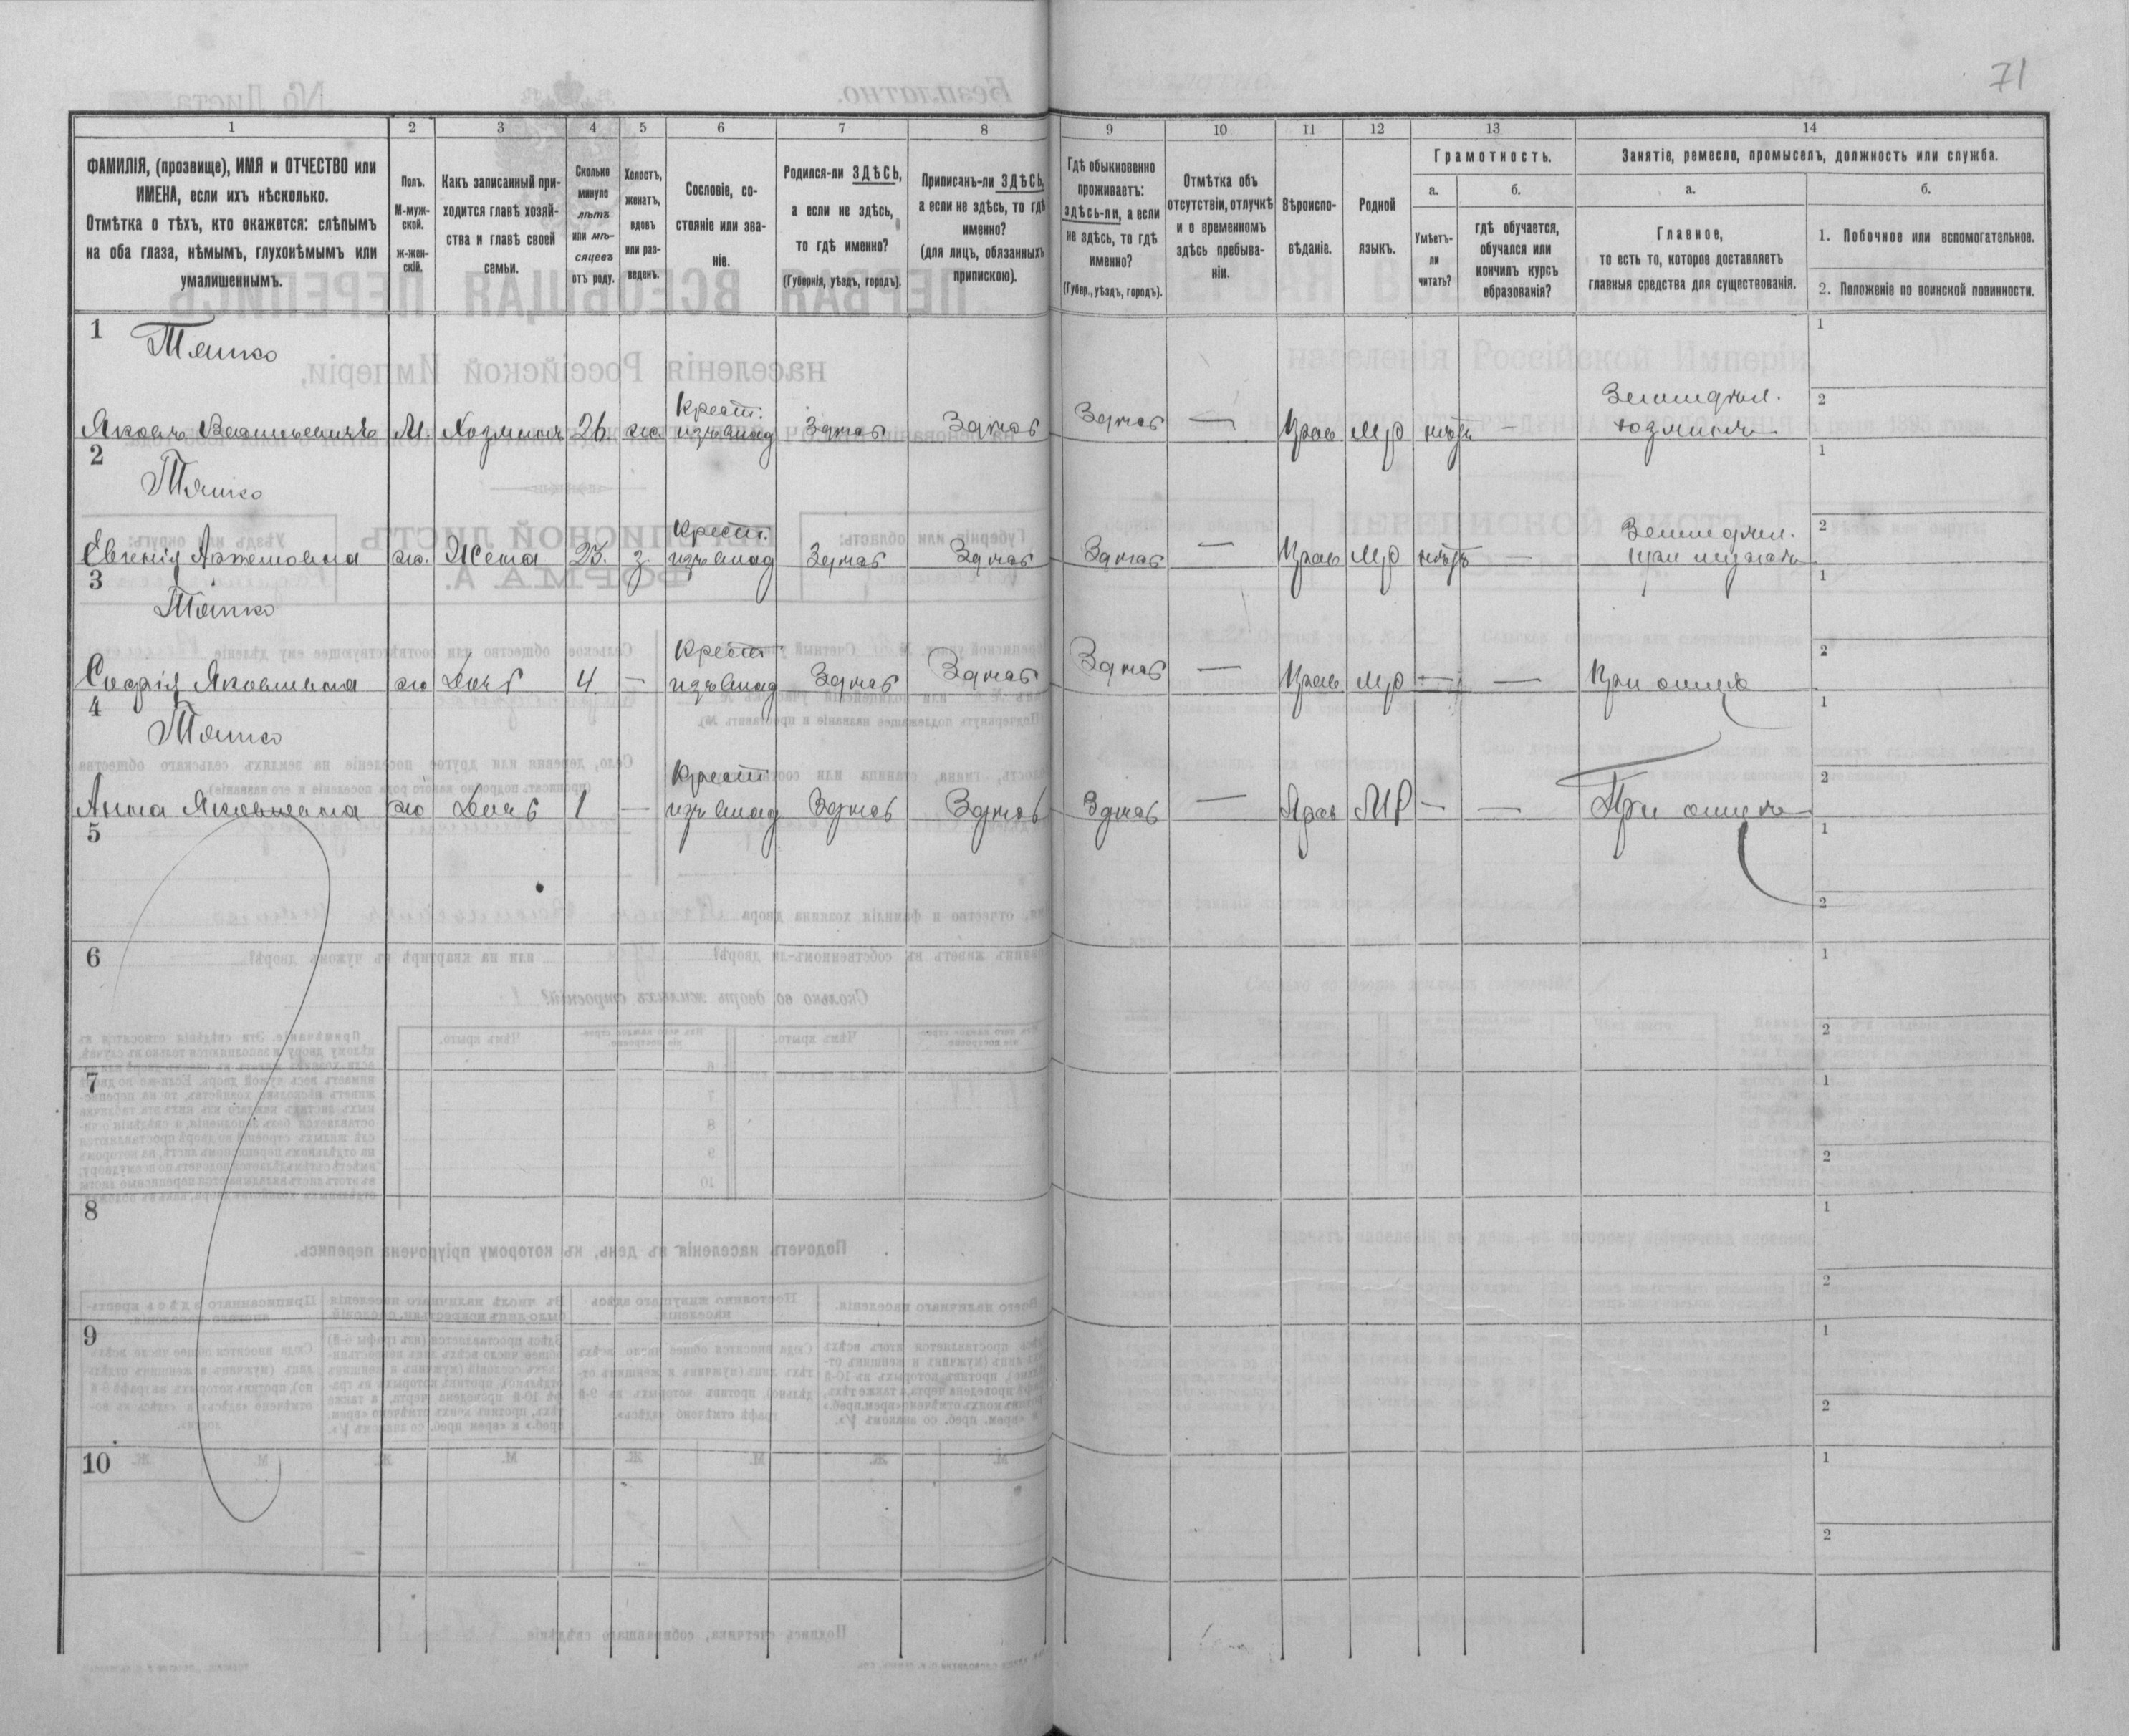 71
1 2 3 4 5 6 7 8 9 10 11 12 13 14
ФАМИЛІЯ, (прозвище), ИМЯ и ОТЧЕСТВО или
ИМЕНА, если ихъ нѣсколько.
Отмѣтка о тѣхъ, кто окажется: слѣпымъ
на оба глаза, нѣмымъ, глухонѣмымъ или
умалишеннымъ.
Полъ.
М-муж-
ской.
ж-жен-
скій.
Какъ записанный при-
ходится главѣ хозяй-
ства и главѣ своей
семьи.
Сколько
минуло
лѣтъ
или мѣ-
сяцевъ
отъ роду.
Холостъ,
женатъ,
вдовъ
или раз-
веденъ.
Сословіе, со-
стояніе или зва-
ніе.
Родился-ли ЗДѢСЬ,
а если не здѣсь,
то гдѣ именно?
(Губернія, уѣздъ, городъ).
Приписанъ-ли ЗДѢСЬ,
а если не здѣсь, то гдѣ
именно?
(для лицъ, обязанныхъ
припискою).
Гдѣ обыкновенно
проживаетъ:
здѣсь-ли, а если
не здѣсь, то гдѣ
именно?
(Губер., уѣздъ, городъ).
Отмѣтка объ
отсутствіи, отлучкѣ
и о временномъ
здѣсь пребыва-
ніи.
Вѣроиспо-
вѣданіе.
Родной
языкъ.
Грамотность.
а.
Умѣетъ-
ли
читать?
б.
гдѣ обучается,
обучался или
кончилъ курсъ
образованія?
Занятіе, ремесло, промыселъ, должность или служба.
а.
Главное,
то есть то, которое доставляетъ
главныя средства для существованія.
б.
1. Побочное или вспомогательное.
2. Положеніе по воинской повинности.
1 1
Крест. 2
Яковъ Васильевичъ М. Хозяинъ 26 же. изъ влад Здѣсь Здѣсь Здѣсь — Прав Мр нѣтъ — хозяинъ
2 1
Крест. 2
Евгенія Артемовна ж. Жена 23. з. изъ влад Здѣсь Здѣсь Здѣсь — Прав Мр нѣтъ —
3 1
Крест 2
Софія Яковлевна ж Дочь 4 — изъ влад Здѣсь Здѣсь Здѣсь — Прав Мр — — При отцѣ
4 1
Крест 2
Анна Яковлевна ж Дочь 1 — изъ влад Здѣсь Здѣсь Здѣсь — Прав МР — — При отцѣ
5 1
2
6 1
2
7 1
2
8 1
2
9 1
2
10 1
2